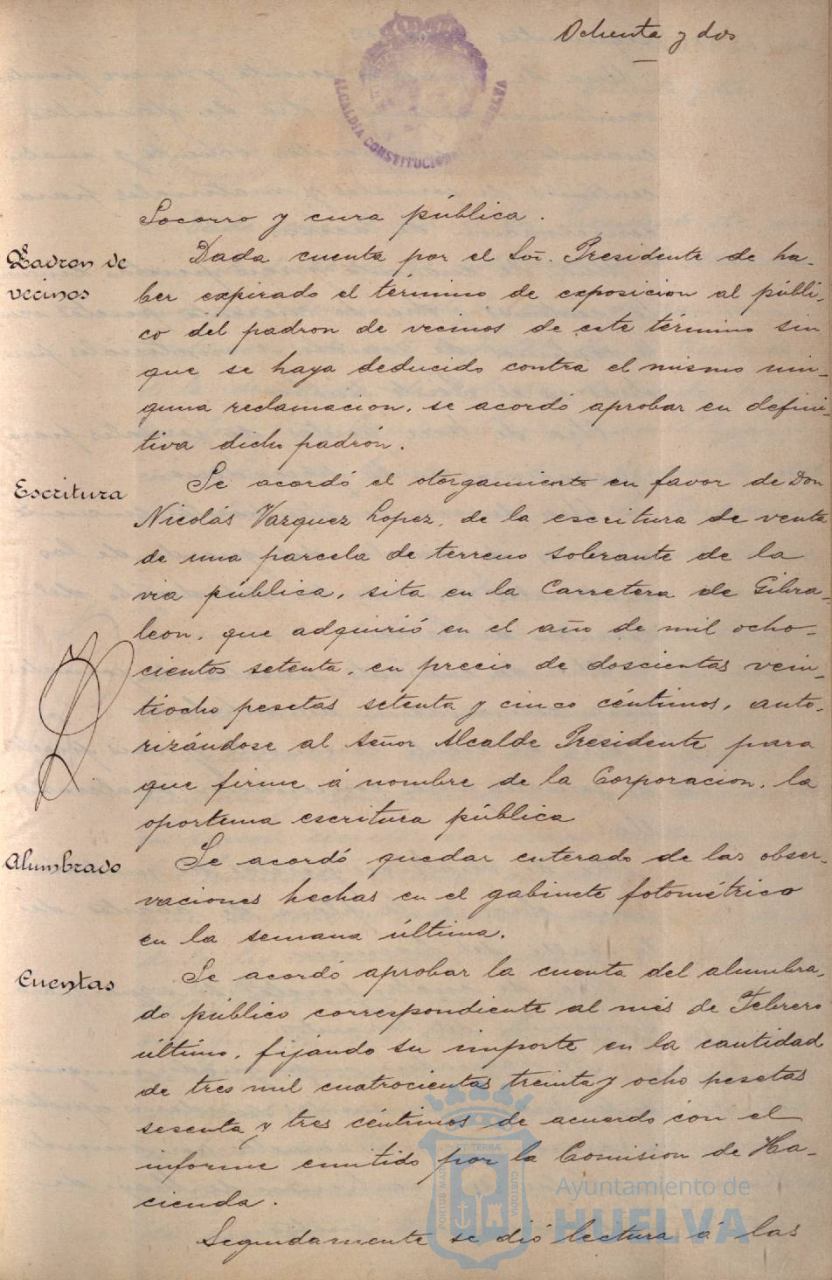 Ochenta y dos
ALCALDÍA CONSTITUCIONAL HUELVA
Socorro y cura pública.
Padron de
vecinos
Dada cuenta por el Señ. Presidente de ha-
ber expirado el término de exposicion al públi-
co del padron de vecinos de este término sin
que se haya deducido contra el mismo nin-
guna reclamacion, se acordó aprobar en defini-
tiva dicho padrón.
Escritura
Se acordó el otorgamiento en favor de Don
Nicolás Vazquez Lopez, de la escritura de venta
de una parcela de terreno sobrante de la
via pública, sita en la Carretera de Gibra-
leon, que adquirió en el año de mil ocho-
cientos setenta, en precio de doscientas vein-
tiocho pesetas setenta y cinco céntimos, auto-
rizándose al Señor Alcalde Presidente para
que firme á nombre de la Corporacion, la
oportuna escritura pública
Alumbrado
Se acordó quedar enterado de las obser-
vaciones hechas en el gabinete fotométrico
en la semana última.
Cuentas
Se acordó aprobar la cuenta del alumbra-
do público correspondiente al més de Febrero
último, fijando su importe en la cantidad
de tres mil cuatrocientas treinta y ocho pesetas
sesenta y tres céntimos de acuerdo con el
informe emitido por la Comision de Ha-
cienda.
Seguidamente se dió lectura á las
Ayuntamiento de
HUELVA